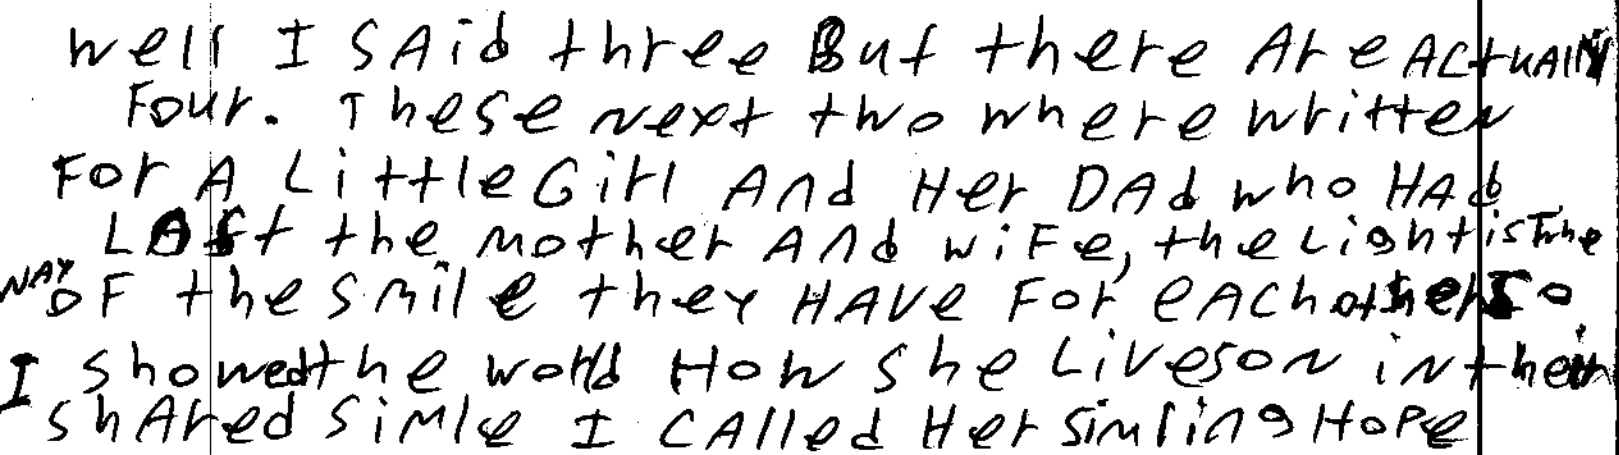 well I SAid three But there Are ActuAlly
Four. These next two where written
For A LittleGirl And Her DAd who HAd
Lost the mother And wiFe, the Light is The
WAY OF the smile they HAVe For eACh other So
I showed the world How She Liveson in their
shAred Simle I cAlled Her Simling HoPe